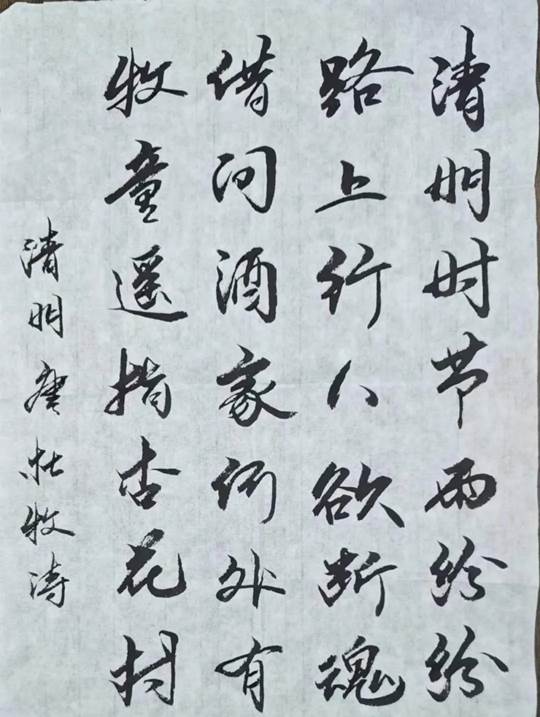 清明时节雨纷纷
路上行人欲断魂
借问酒家何处有
牧童遥指杏花村
清明唐杜牧诗